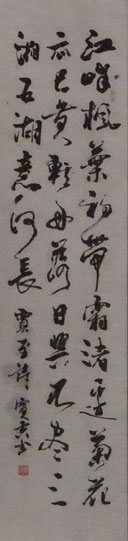 江畔楓葉初帶霜渚邊菊花
亦已黃輕舟落日興不盡三
湘五湖意何長 賈至詩 書